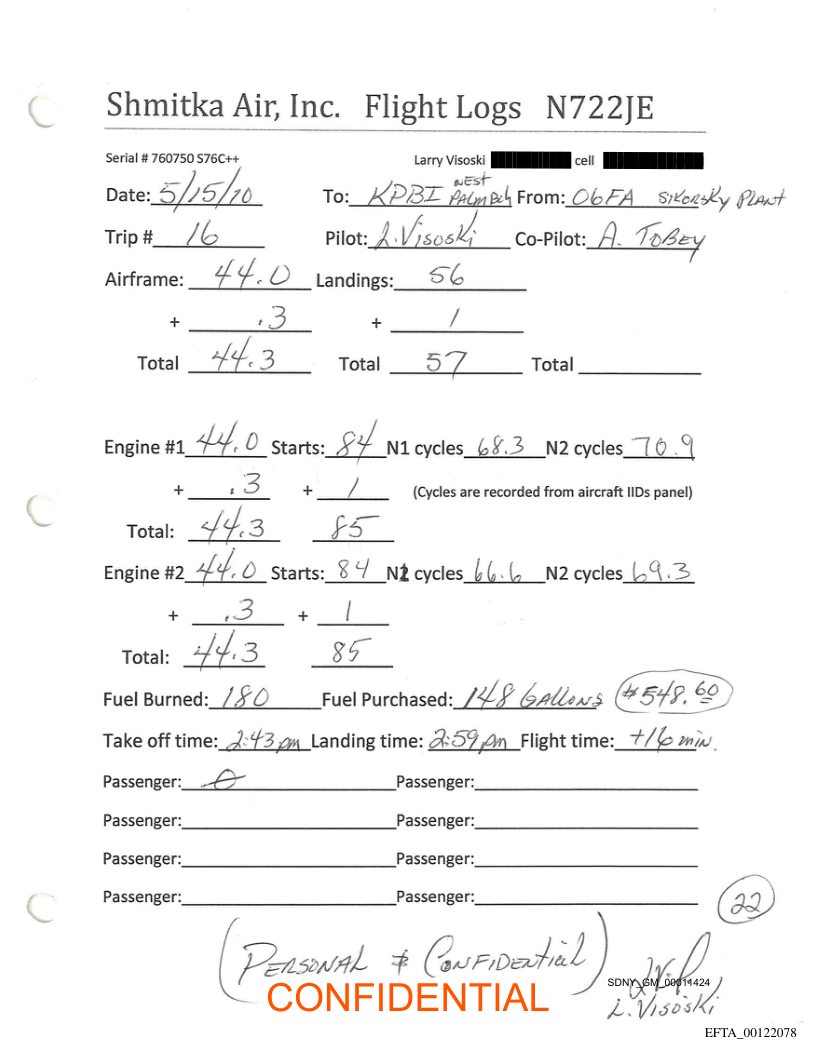 Shmitka Air, Inc. Flight Logs N722JE
Serial # 760750 S76C++ Larry Visoski cell
Date: 5/15/10 To: KPBI WEST PALM BCH From: 06FA SIKORSKY PLANT
Trip # 16 Pilot: L. Visoski Co-Pilot: A. TOBEY
Airframe: 44.0 Landings: 56
+ .3 + 1
Total 44.3 Total 57 Total
Engine #1 44.0 Starts: 84 N1 cycles 68.3 N2 cycles 70.9
+ .3 + 1 (Cycles are recorded from aircraft IIDs panel)
Total: 44.3 85
Engine #2 44.0 Starts: 84 N1 cycles 66.6 N2 cycles 69.3
+ .3 + 1
Total: 44.3 85
Fuel Burned: 180 Fuel Purchased: 148 GALLONS $548.60
Take off time: 2:43 pm Landing time: 2:59 pm Flight time: +16 min.
Passenger: 0 Passenger:
Passenger: Passenger:
Passenger: Passenger:
Passenger: Passenger:
22
(PERSONAL & CONFIDENTIAL)
CONFIDENTIAL
SDNY_GM_00011424
L. VISOSKI
EFTA_00122078